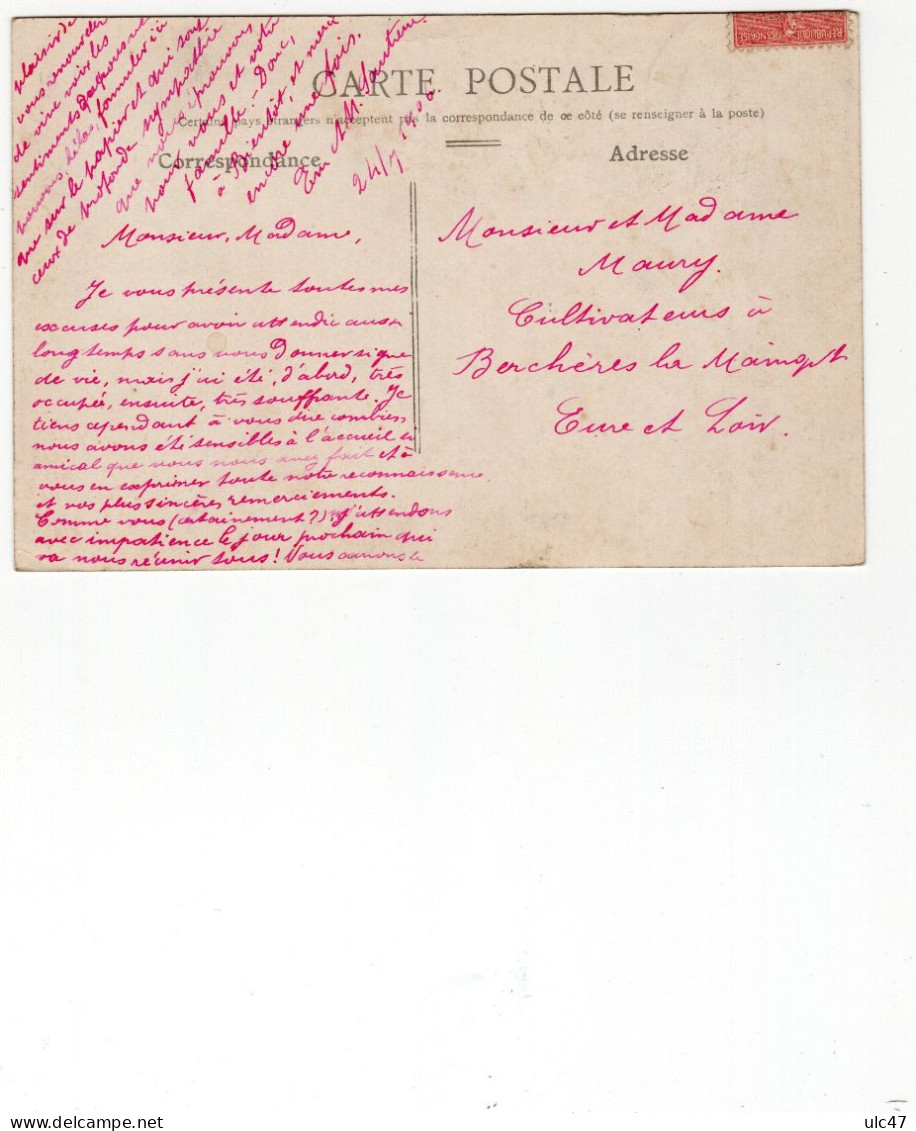 CARTE POSTALE
(Certains pays étrangers n'acceptent pas la correspondance de ce côté (se renseigner à la poste)
Correspondance
Adresse
RÉPUBLIQUE FRANÇAISE
Monsieur, Madame,
Je vous présente toutes mes
excuses pour avoir attendu aussi
longtemps sans vous donner signe
de vie, mais j'ai été, d'abord, très
occupée, ensuite, très souffrante. Je
tiens cependant à vous dire combien
nous avons été sensibles à l'accueil si
amical que vous nous avez fait et à
vous en exprimer toute notre reconnaissance
et nos plus sincères remerciements.
Comme vous (certainement?) j'attendons
avec impatience le jour prochain qui
va nous réunir tous! Nous aurons le
plaisir de
vous renouveler
de vive voix les
sentiments que nous ne
pouvons, hélas, formuler ici
que sur le papier et qui sont
ceux de profonde sympathie
que nous éprouvons
pour vous et votre
famille. Donc,
à Bientôt, et merci
encore une fois.
24/7
Monsieur et Madame
Maury.
Cultivateurs à
Berchères la Maingot
Eure et Loir.
delcampe.net
ulc47